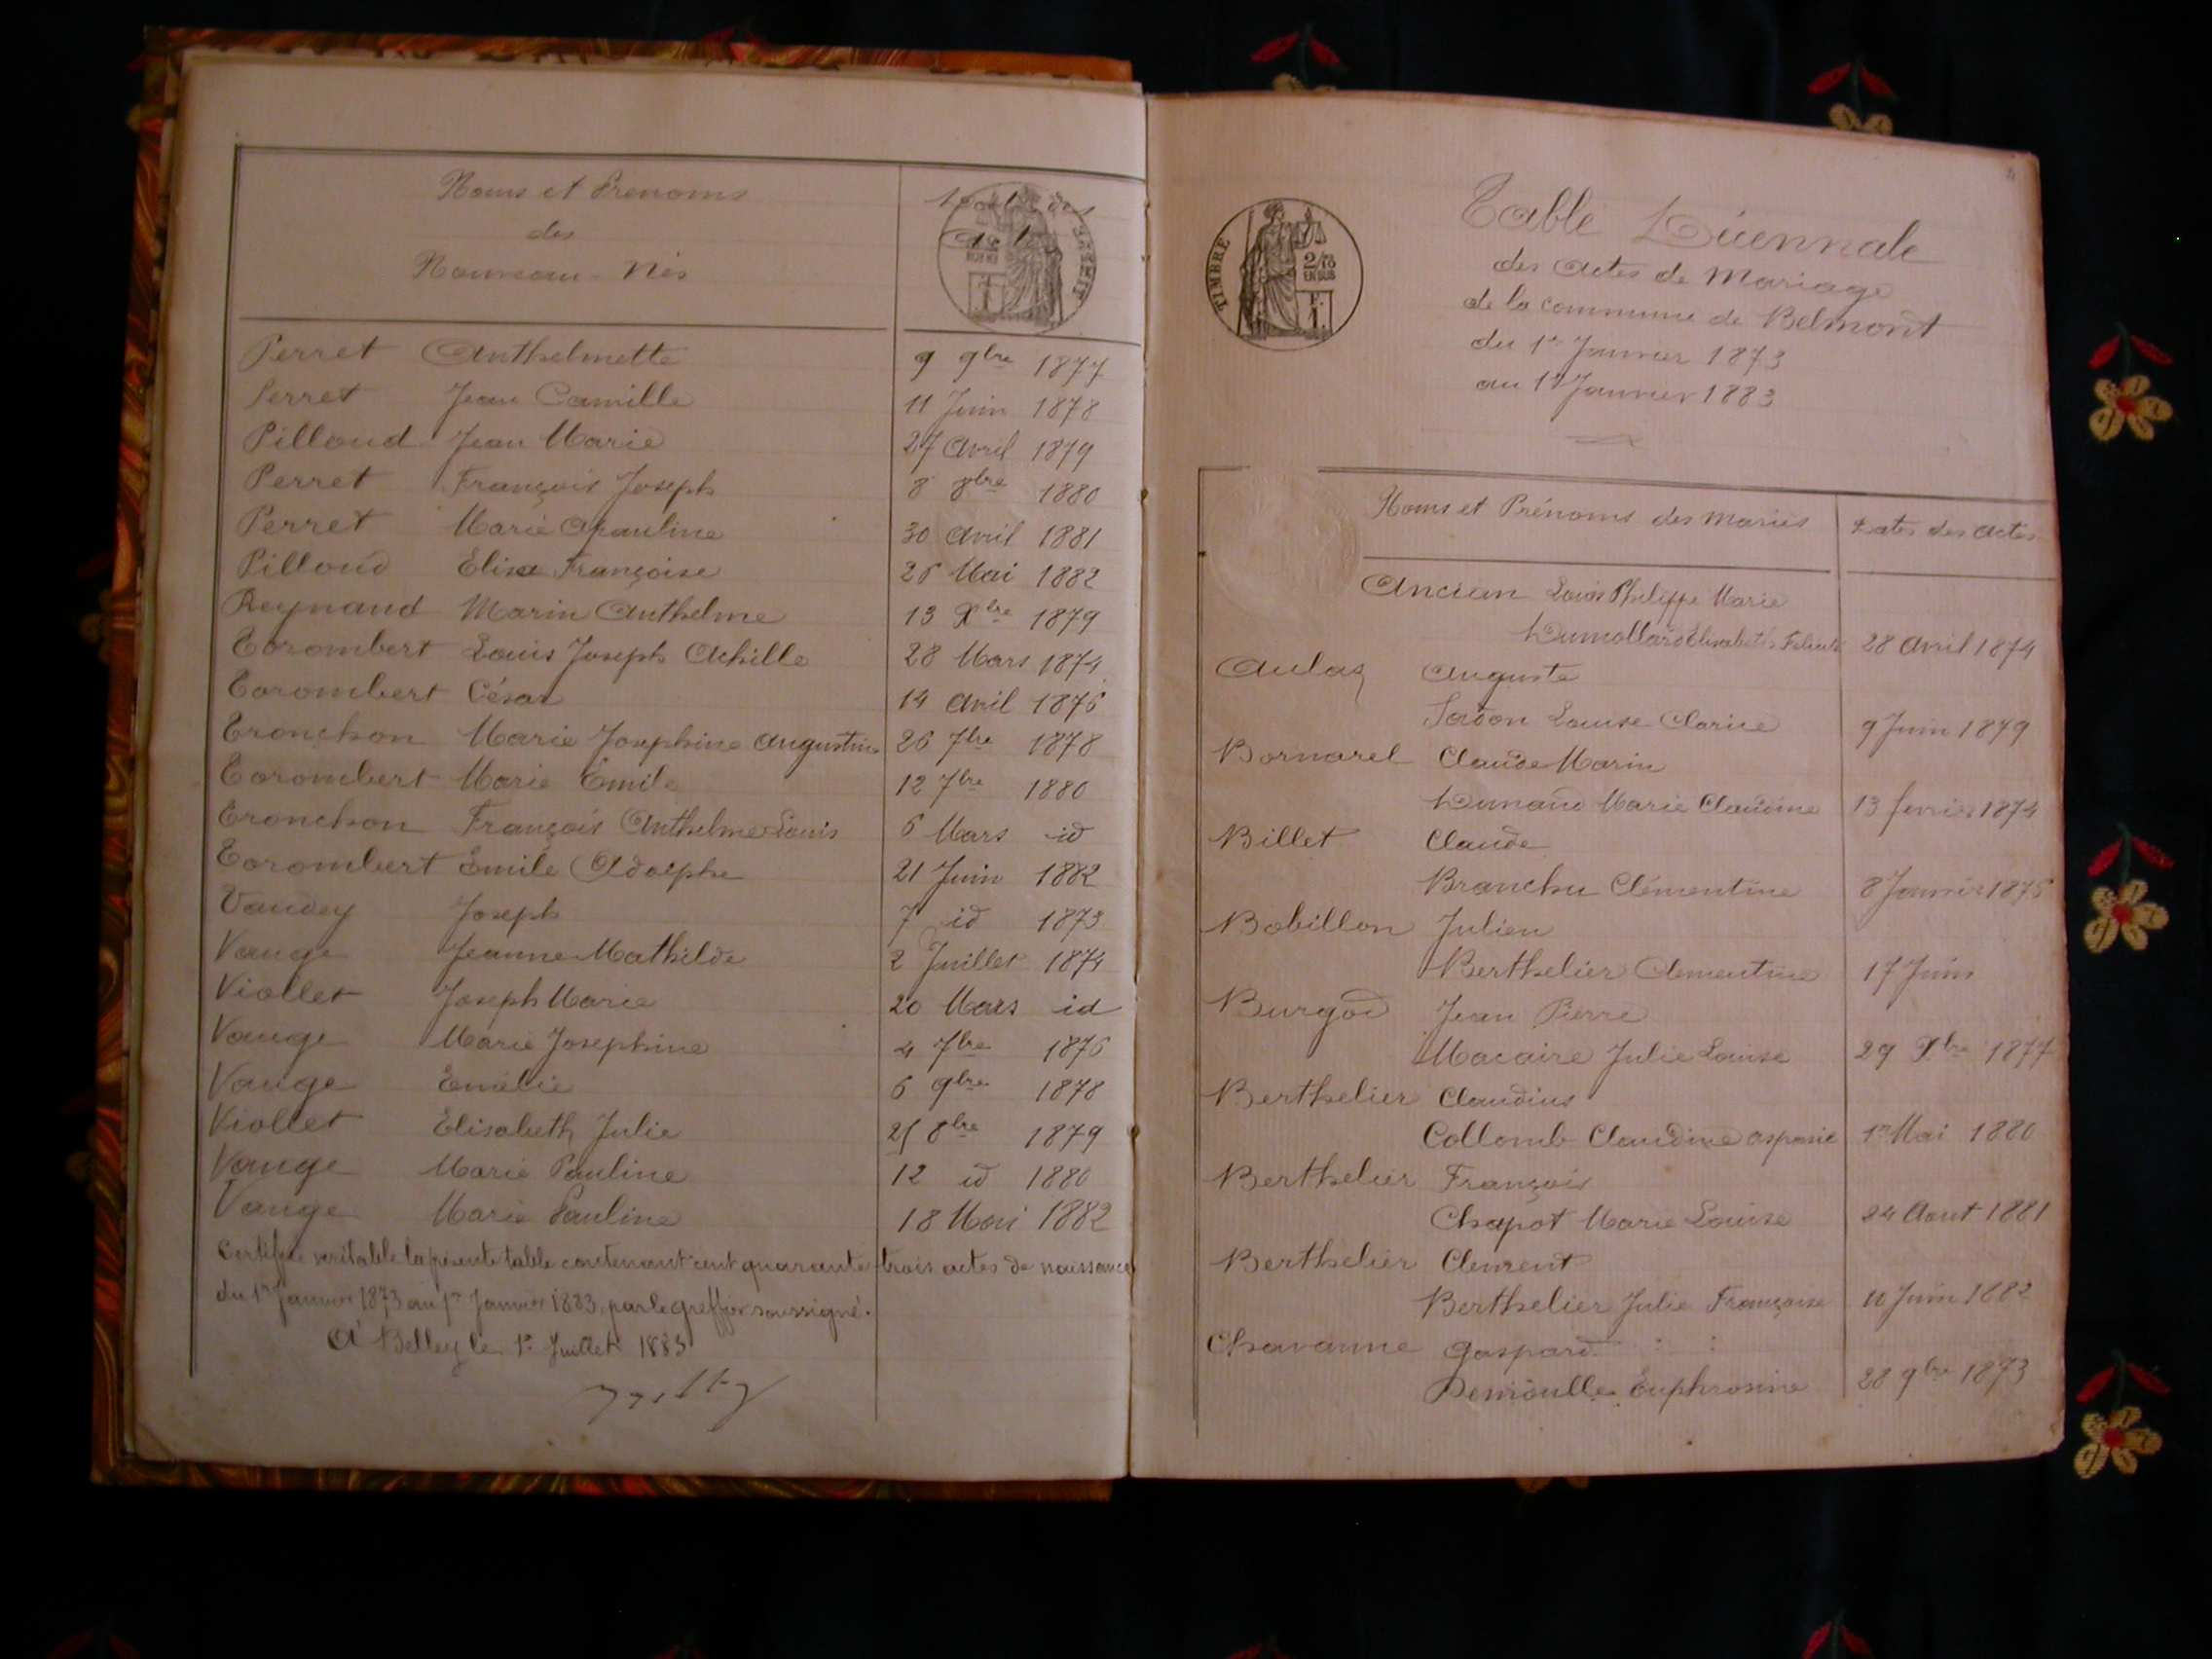 Noms et Prenoms
des
Nouveau-Nés
Dates des
Actes
Perret Anthelmette 9 9bre 1877
Perret Jean Camille 11 Juin 1878
Pilloud Jean Marie 27 Avril 1879
Perret François Joseph 8 8bre 1880
Perret Marie Pauline 30 Avril 1881
Pilloud Elisa Françoise 26 Mai 1882
Reynaud Marin Anthelme 13 Xbre 1879
Corombert Louis Joseph Achille 28 Mars 1874
Corombert César 14 Avril 1876
Tronchon Marie Josephine Augustine 26 7bre 1878
Corombert Marie Emile 12 7bre 1880
Tronchon François Anthelme Louis 6 Mars id
Corombert Emile Adolphe 21 Juin 1882
Vaudey Joseph 7 id 1873
Vauge Jeanne Mathilde 2 Juillet 1874
Viollet Joseph Marie 20 Mars id
Vauge Marie Josephine 4 7bre 1876
Vauge Emélie 6 9bre 1878
Viollet Elisabeth Julie 25 8bre 1879
Vauge Marie Pauline 12 id 1880
Vauge Marie Pauline 18 Mai 1882
Certifiée véritable la présente table contenant cent quarante-trois actes de naissance
du 1er Janvier 1873 au 1er Janvier 1883, par le greffier soussigné.
A Belley le 1er Juillet 1883
TIMBRE
2/10
EN SUS
1 F.
Table Décennale
des Actes de Mariage
de la commune de Belmont
du 1er Janvier 1873
au 1er Janvier 1883
Noms et Prénoms des Mariés Dates des Actes
Ancian Louis Philippe Marie
Dumollard Elisabeth 28 Avril 1874
Aulas Auguste
Louise Clarice 9 Juin 1879
Bornarel Claude Marin
Dunand Marie Claudine 13 fevrier 1874
Billet Claude
Branchu Clémentine 8 Janvier 1876
Bobillon Julien
Berthelier Clementine 17 Juin
Burgod Jean Pierre
Macaire Julie Louise 29 Xbre 1877
Berthelier Claudius
Collomb Claudine Aspasie 1er Mai 1880
Berthelier François
Chapot Marie Louise 24 Aout 1881
Berthelier Clement
Berthelier Julie Françoise 10 Juin 1882
Chavanne Gaspard
Euphrosine 28 9bre 1873